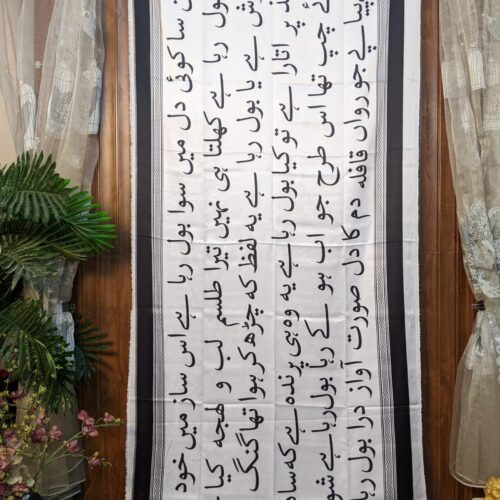 سا کوئی دل میں سوا بول رہا ہے اس ساز میں خود
رہا ہے کھلتا ہی نہیں تیرا طلسم لب و لهجہ کیا
ہے یا بول رہا ہے یہ لفظ کہ چڑھ کر ہوا تھا گنگ
پر اتارا ہے تو کیا بول رہا ہے یہ وہ ہی پرندہ ہے کہ
چپ تھا اس طرح جو اب ہو کے رہا بول رہا ہے
پیاپے جو رواں قافلہ دم کا دل صورت آواز درا بول